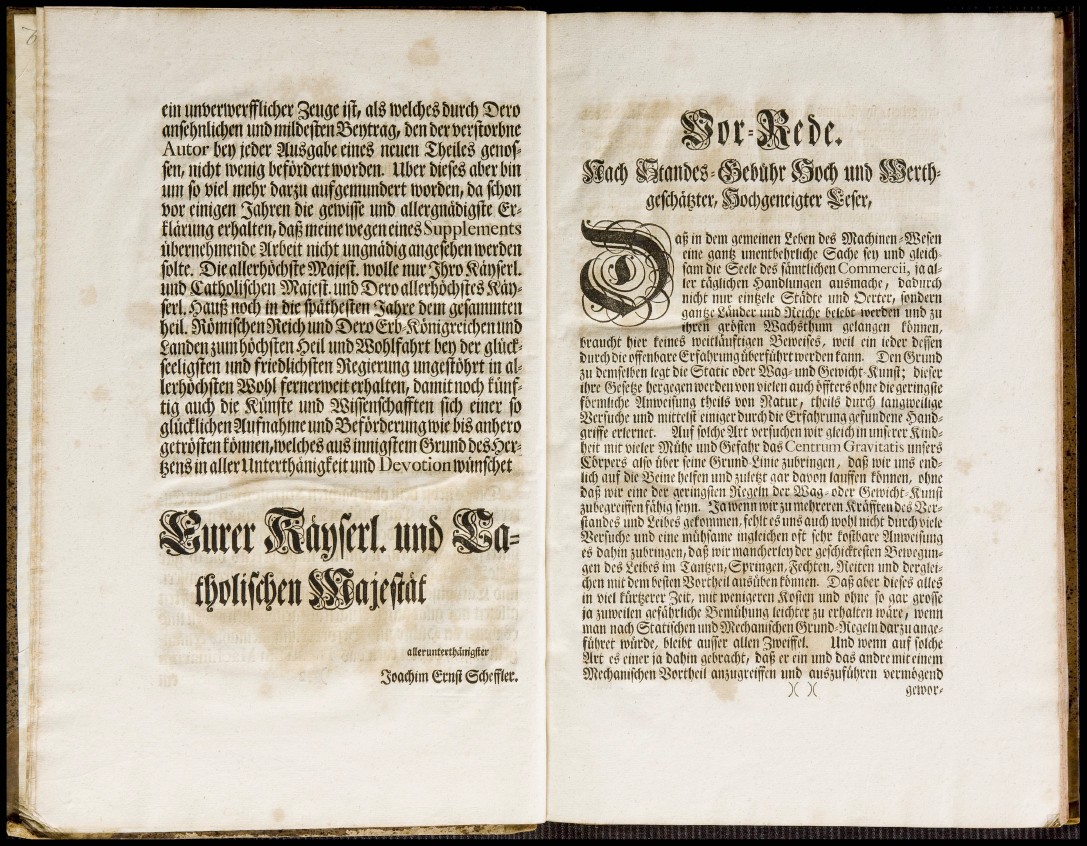 ein unverwerfflicher Zeuge ist, als welches durch Dero
ansehnlichen und mildesten Beytrag, den der verstorbne
Autor bey jeder Ausgabe eines neuen Theiles genos-
sen, nicht wenig befördert worden. Uber dieses aber bin
um so viel mehr darzu aufgemundert worden, da schon
vor einigen Jahren die gewisse und allergnädigste Er-
klärung erhalten, daß meine wegen eines Supplements
übernehmende Arbeit nicht ungnädig angesehen werden
solte. Die allerhöchste Majest. wolle nur Ihro Käyserl.
und Catholischen Majest. und Dero allerhöchstes Käy-
serl. Hauß noch in die späthesten Jahre dem gesammten
heil. Römischen Reich und Dero Erb-Königreichen und
Landen zum höchsten Heil und Wohlfahrt bey der glück-
seeligsten und friedlichsten Regierung ungestöhrt in al-
lerhöchsten Wohl fernerweit erhalten, damit noch künf-
tig auch die Künste und Wissenschafften sich einer so
glücklichen Aufnahme und Beförderung wie bis anhero
getrösten können, welches aus innigstem Grund des Her-
tzens in aller Unterthänigkeit und Devotion wünschet
Eurer Käyserl. und Ca-
tholischen Majestät
allerunterthänigster
Joachim Ernst Scheffler.
Vor-Rede.
Nach Standes-Gebühr Hoch und Werth-
geschätzter, Hochgeneigter Leser,
Daß in dem gemeinen Leben des Machinen-Wesen
eine gantz unentbehrliche Sache sey und gleich-
sam die Seele des sämtlichen Commercii, ja al-
ler täglichen Handlungen ausmache, dadurch
nicht nur eintzele Städte und Oerter, sondern
gantze Länder und Reiche belebt werden und zu
ihren grösten Wachsthum gelangen können,
braucht hier keines weitläuftigen Beweises, weil ein ieder dessen
durch die offenbare Erfahrung überführt werden kann. Den Grund
zu demselben legt die Static oder Wag- und Gewicht-Kunst; dieser
ihre Gesetze hergegen werden von vielen auch öffters ohne die geringste
förmliche Anweisung theils von Natur, theils durch langweilige
Versuche und mittelst einiger durch die Erfahrung gefundene Hand-
griffe erlernet. Auf solche Art versuchen wir gleich in unserer Kind-
heit mit vieler Mühe und Gefahr das Centrum Gravitatis unsers
Cörpers also über seine Grund Linie zubringen, daß wir uns end-
lich auf die Beine helfen und zuletzt gar davon lauffen können, ohne
daß wir eine der geringsten Regeln der Wag- oder Gewicht-Kunst
zubegreiffen fähig seyn. Ja wenn wir zu mehreren Kräfften des Ver-
standes und Leibes gekommen, fehlt es uns auch wohl nicht durch viele
Versuche und eine mühsame ingleichen oft sehr kostbare Anweisung
es dahin zubringen, daß wir mancherley der geschicktesten Bewegun-
gen des Leibes im Tantzen, Springen, Fechten, Reiten und derglei-
chen mit dem besten Vortheil ausüben können. Daß aber dieses alles
in viel kürtzerer Zeit, mit wenigeren Kosten und ohne so gar grosse
ja zuweilen gefährliche Bemühung leichter zu erhalten wäre, wenn
man nach Statischen und Mechanischen Grund-Regeln darzu ange-
führet würde, bleibt ausser allen Zweiffel. Und wenn auf solche
Art es einer ja dahin gebracht, daß er ein und das andre mit einem
Mechanischen Vortheil anzugreiffen und auszuführen vermögend
)( )( gewor-